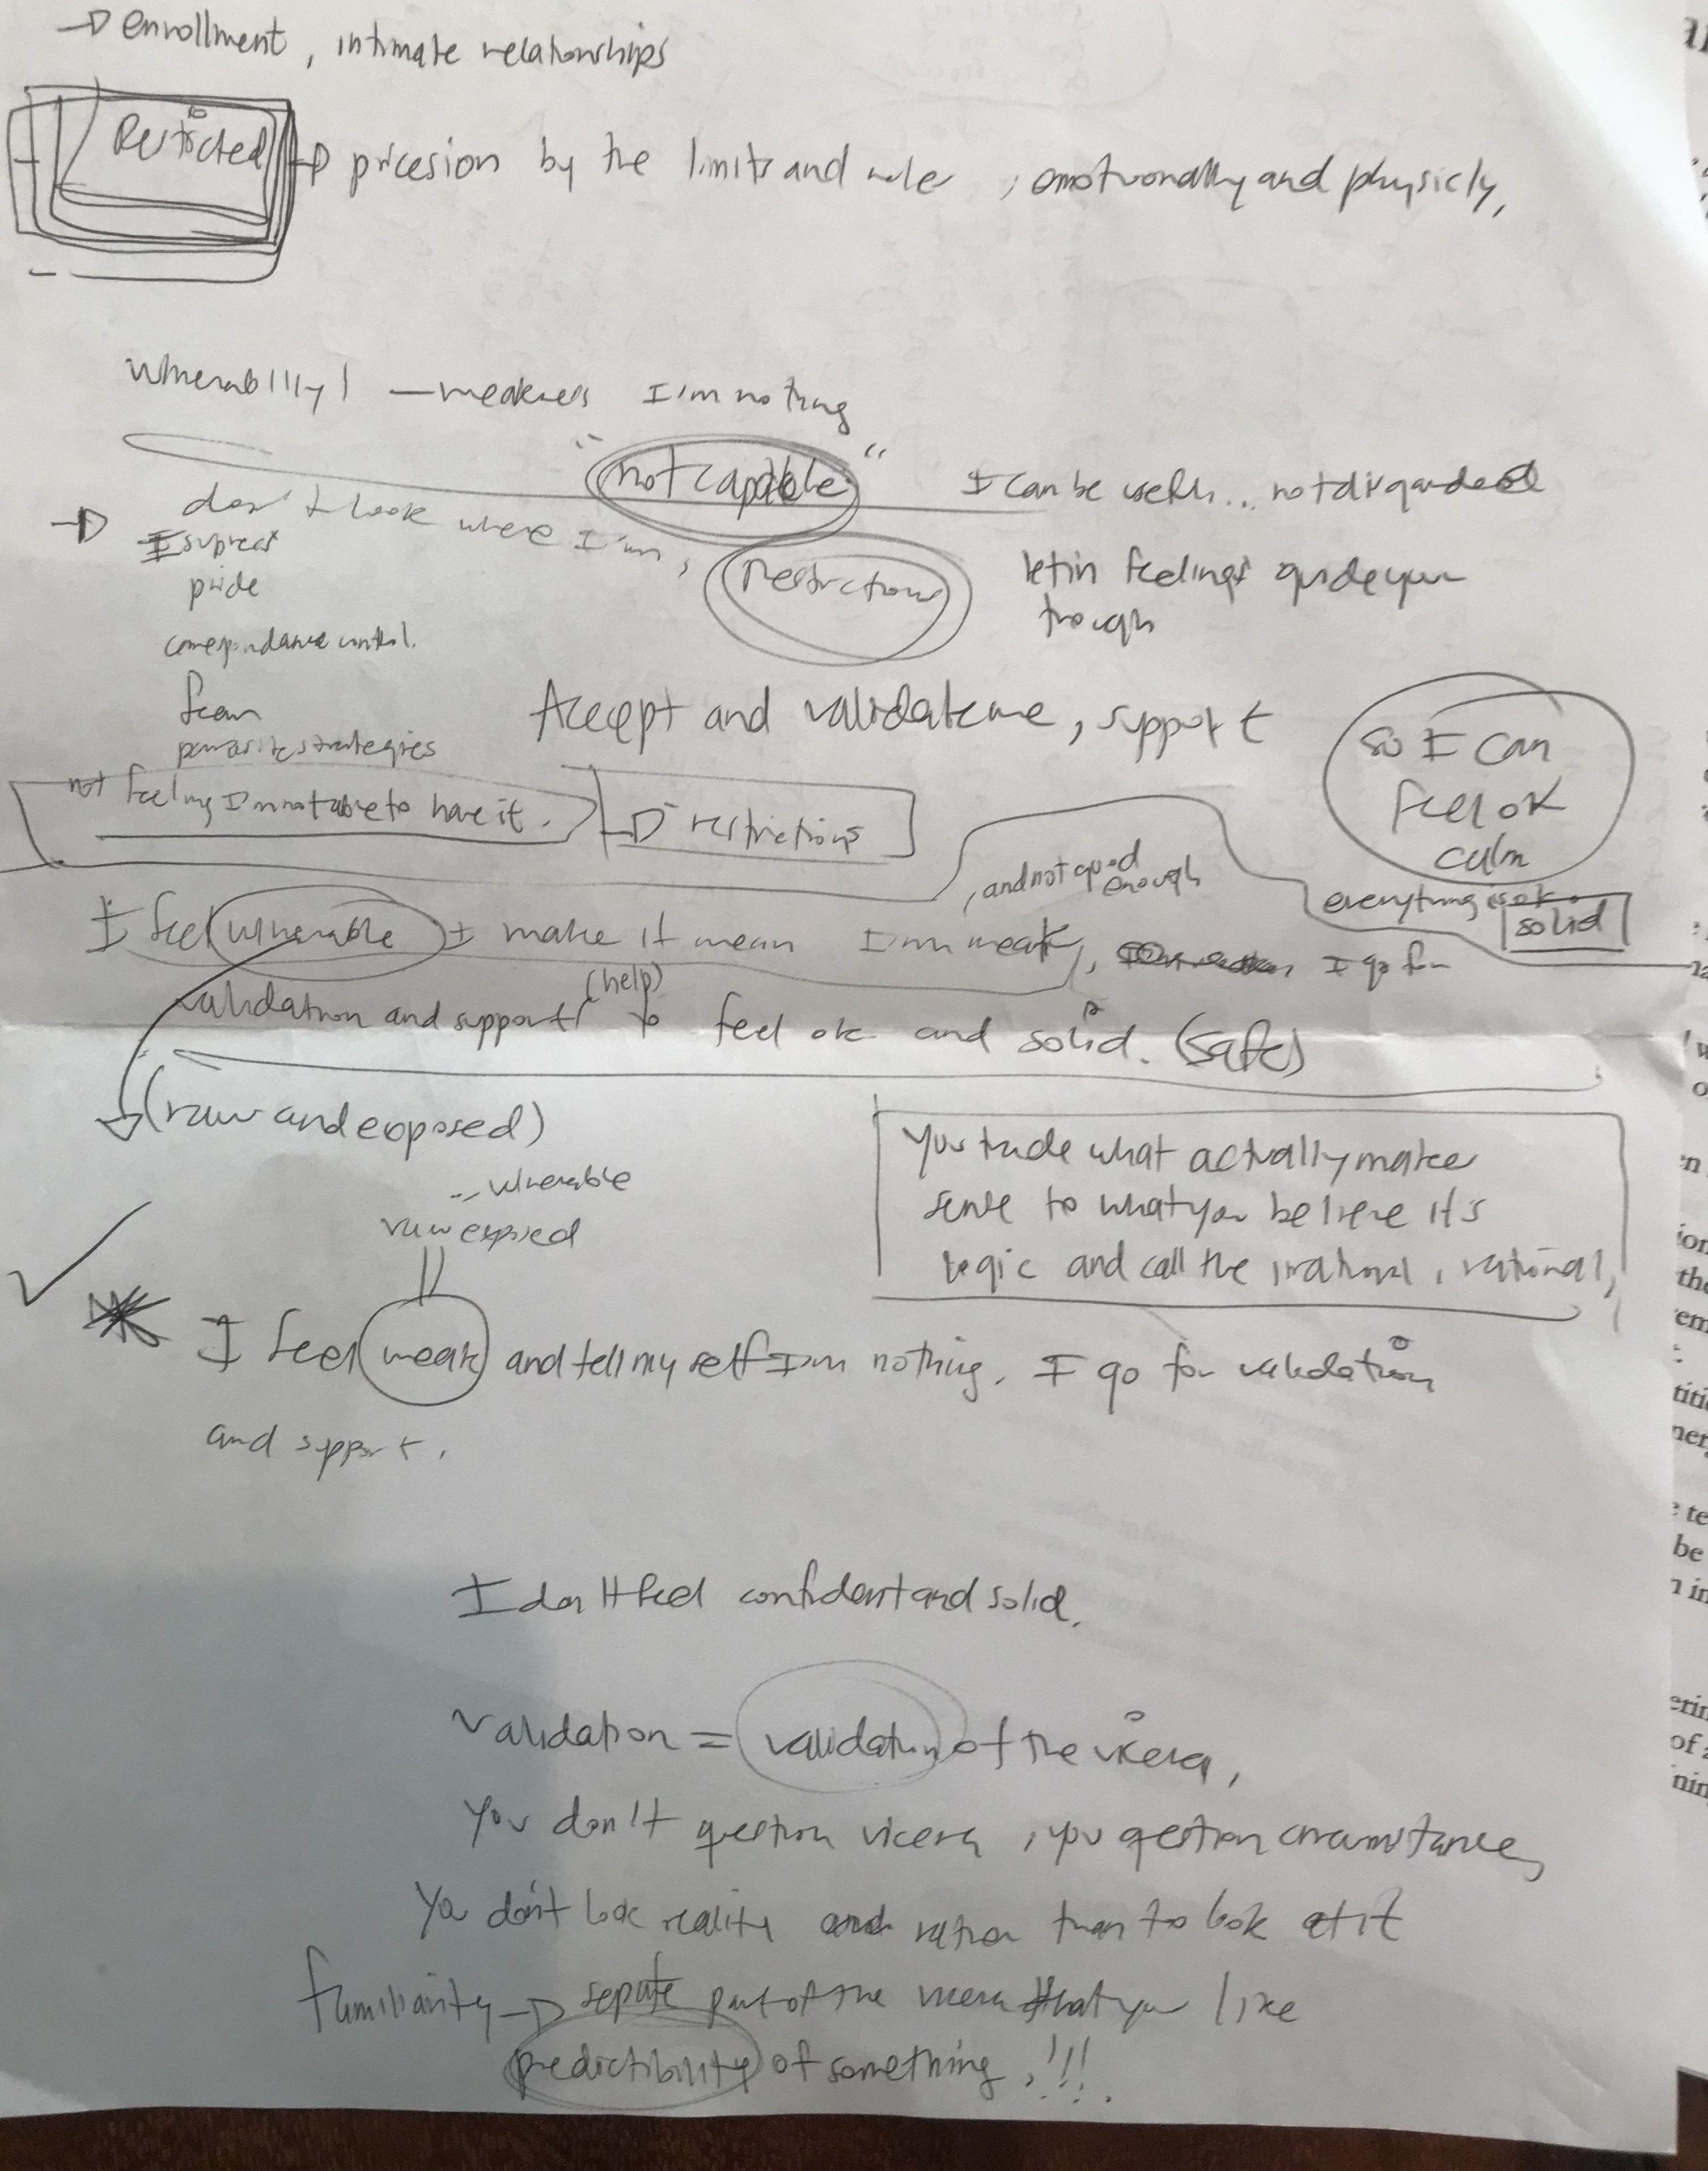 enrollment, intimate relationships
Restricted
pricesion by the limits and rules, emotionally and physicly,
vulnerability! – weakness I'm nothing
"not capable"
I can be useful... not disgarded
don't look where I'm,
restrictions
let in feelings guide you
trough
pride
correspondance control.
fear
parasite strategies
Accept and validate me, support
so I can
feel ok
calm
not feeling I'm not able to have it.
restrictions
, and not good
enough
everything is ok.
solid
I feel vulnerable I make it mean I'm weak, I go for
(help)
validation and support to feel ok and solid. (safe)
(raw and exposed)
You trade what actually makes
sense to what you believe it's
logic and call the irrational, rational,
... vulnerable
raw exposed
I feel weak and tell my self I'm nothing. I go for validation
and support.
I don't feel confident and solid.
validation = validation of the vicera,
You don't question vicera, you qestion circumstances
You don't look reality and rather than to look at it
familiarity sepate part of the vicera that you like
predictibility of something, !!!